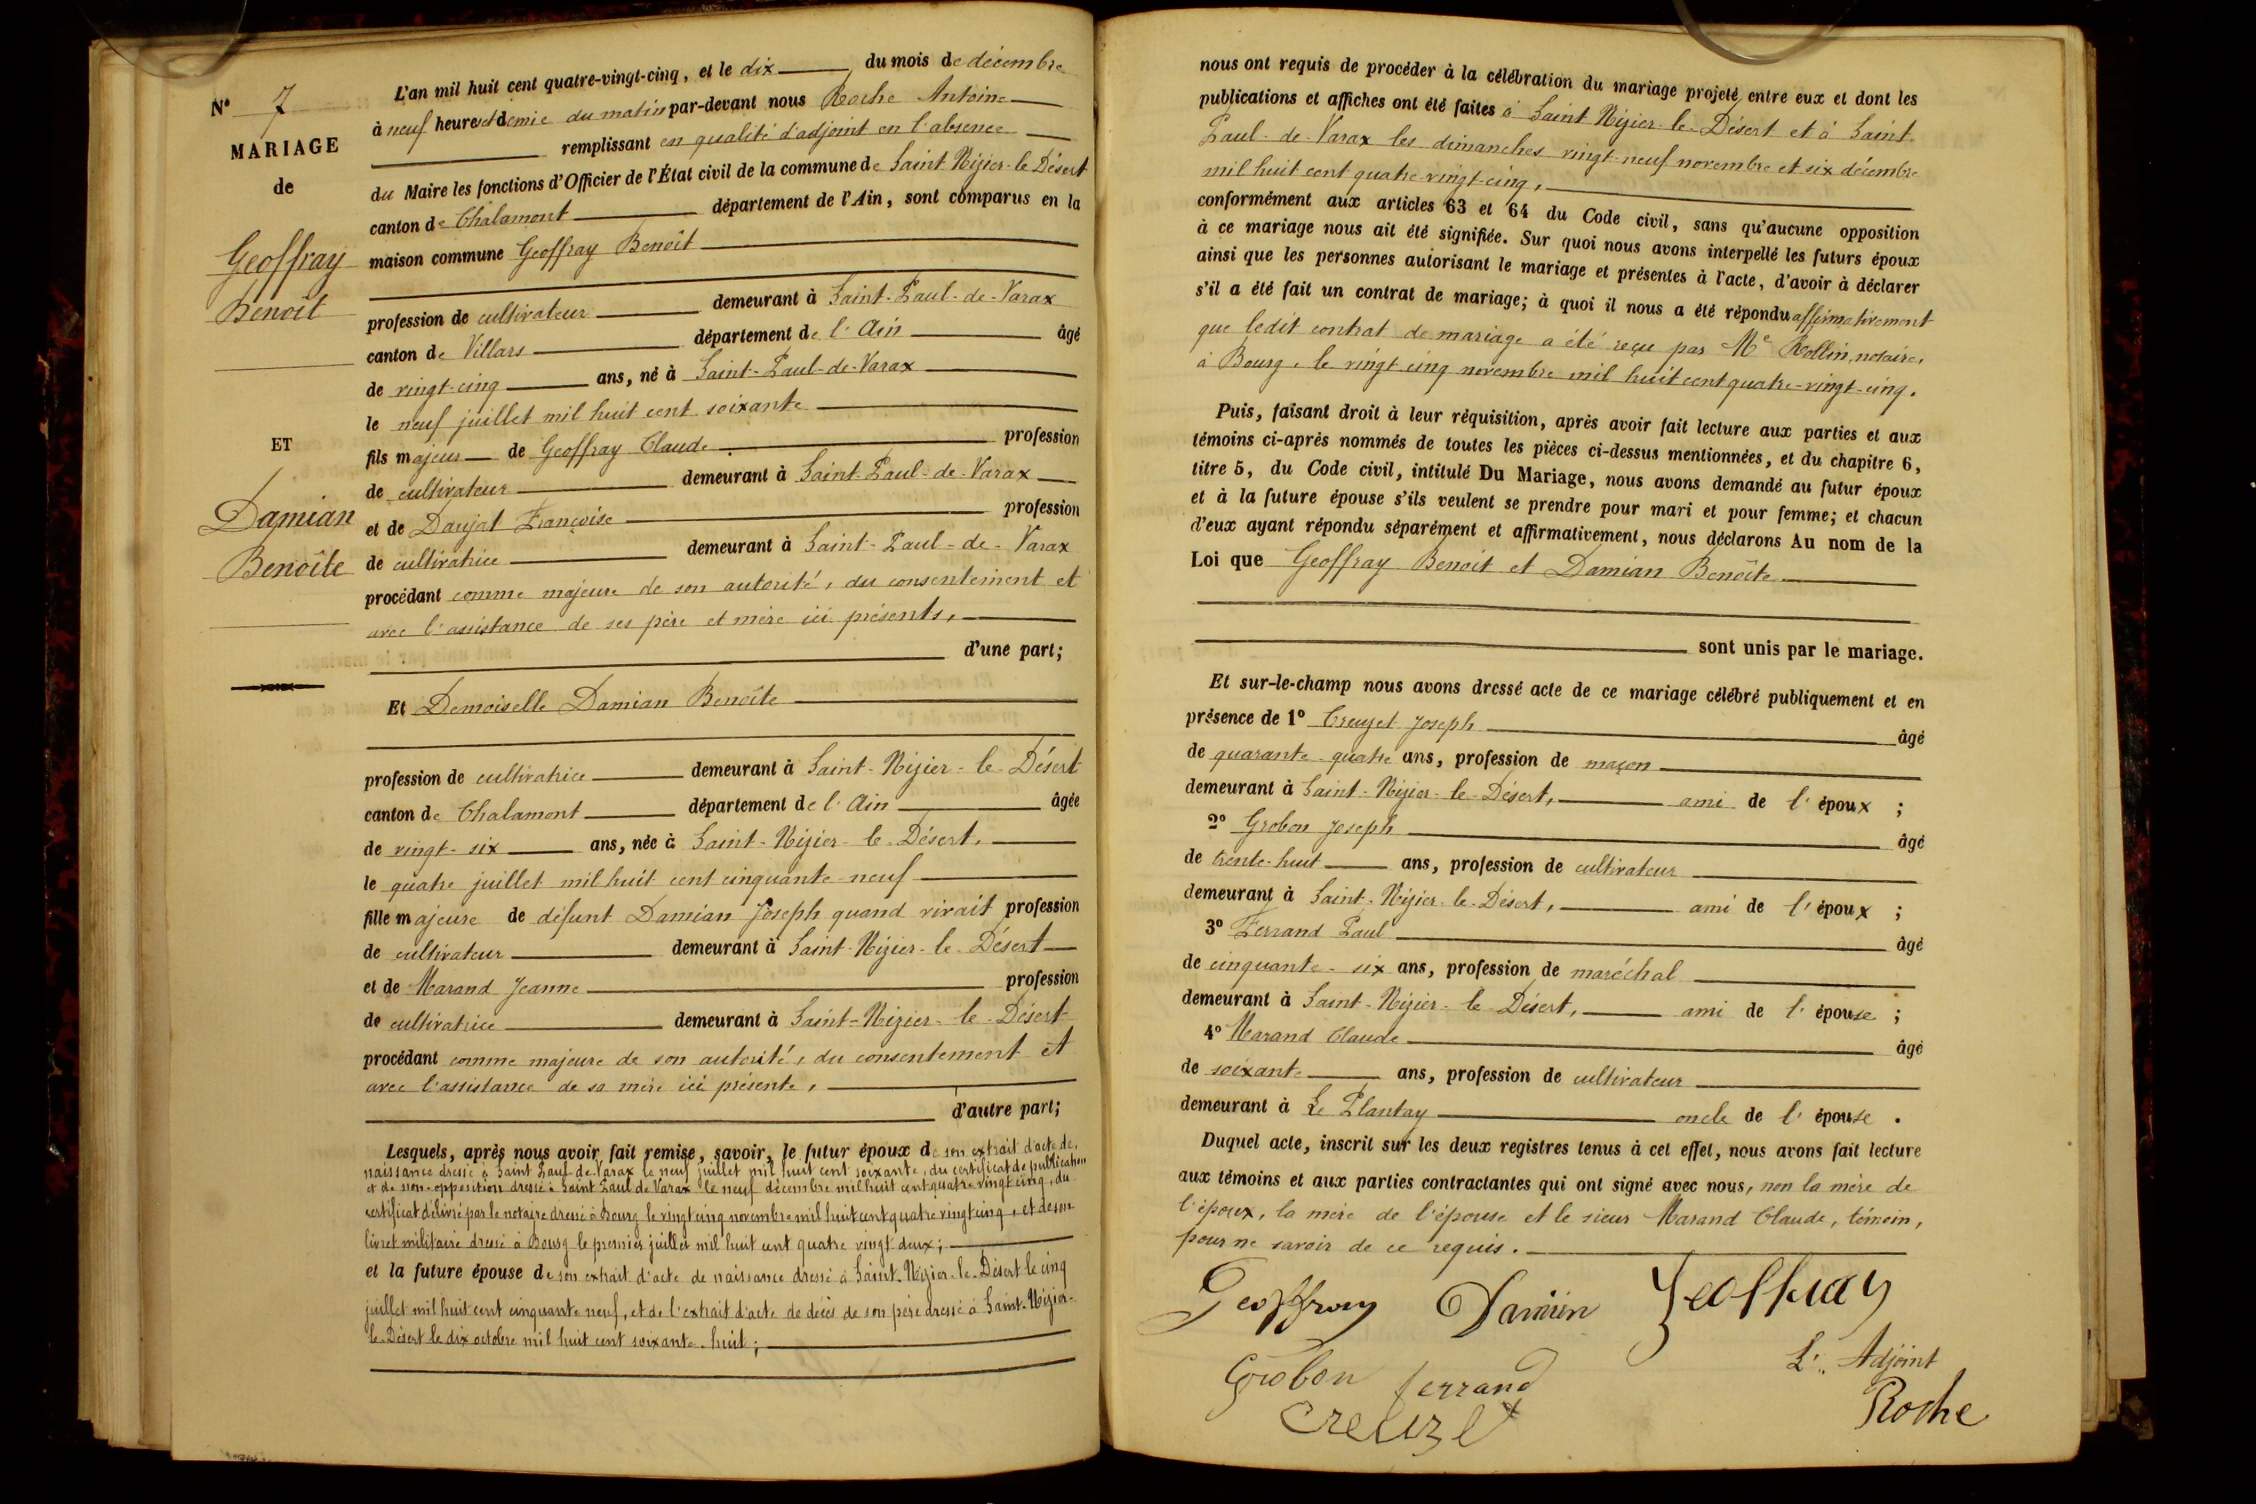 N° 7
MARIAGE
de
Geoffray
Benoît
ET
Damian
Benoîte
L'an mil huit cent quatre-vingt-cinq, et le dix du mois de décembre
à neuf heures et demie du matin par-devant nous Roche Antoine
remplissant en qualité d'adjoint en l'absence
du Maire les fonctions d'Officier de l'État civil de la commune de Saint-Nizier-le-Désert
canton de Chalamont département de l'Ain, sont comparus en la
maison commune Geoffray Benoît
profession de cultivateur demeurant à Saint-Paul-de-Varax
canton de Villars département de l'Ain âgé
de vingt-cinq ans, né à Saint-Paul-de-Varax
le neuf juillet mil huit cent soixante
fils majeur de Geoffray Claude profession
de cultivateur demeurant à Saint-Paul-de-Varax
et de Daujat Françoise profession
de cultivatrice demeurant à Saint-Paul-de-Varax
procédant comme majeure de son autorité, du consentement et
avec l'assistance de ses père et mère ici présents,
d'une part;
Et Demoiselle Damian Benoîte
profession de cultivatrice demeurant à Saint-Nizier-le-Désert
canton de Chalamont département de l'Ain âgée
de vingt-six ans, née à Saint-Nizier-le-Désert,
le quatre juillet mil huit cent cinquante-neuf
fille majeure de défunt Damian Joseph quand vivait profession
de cultivateur demeurant à Saint-Nizier-le-Désert
et de Marand Jeanne profession
de cultivatrice demeurant à Saint-Nizier-le-Désert
procédant comme majeure de son autorité, du consentement et
avec l'assistance de sa mère ici présente,
d'autre part;
Lesquels, après nous avoir fait remise, savoir, le futur époux de son extrait d'acte de
naissance dressé à Saint Paul-de-Varax le neuf juillet mil huit cent soixante, du certificat de publication
et de non-opposition dressé à Saint Paul de Varax le neuf décembre mil huit cent quatre vingt cinq, du
certificat délivré par le notaire dressé à Bourg le vingt cinq novembre mil huit cent quatre vingt cinq, et de son
livret militaire dressé à Bourg le premier juillet mil huit cent quatre vingt deux;
et la future épouse de son extrait d'acte de naissance dressé à Saint-Nizier-le-Désert le cinq
juillet mil huit cent cinquante neuf, et de l'extrait d'acte de décès de son père dressé à Saint-Nizier-
le-Désert le dix octobre mil huit cent soixante-huit;
nous ont requis de procéder à la célébration du mariage projeté entre eux et dont les
publications et affiches ont été faites à Saint Nizier-le-Désert et à Saint
Paul-de-Varax les dimanches vingt-neuf novembre et six décembre
mil huit cent quatre-vingt-cinq,
conformément aux articles 63 et 64 du Code civil, sans qu'aucune opposition
à ce mariage nous ait été signifiée. Sur quoi nous avons interpellé les futurs époux
ainsi que les personnes autorisant le mariage et présentes à l'acte, d'avoir à déclarer
s'il a été fait un contrat de mariage; à quoi il nous a été répondu affirmativement
que ledit contrat de mariage a été reçu par Me Rollin, notaire,
à Bourg, le vingt cinq novembre mil huit cent quatre-vingt-cinq.
Puis, faisant droit à leur réquisition, après avoir fait lecture aux parties et aux
témoins ci-après nommés de toutes les pièces ci-dessus mentionnées, et du chapitre 6,
titre 5, du Code civil, intitulé Du Mariage, nous avons demandé au futur époux
et à la future épouse s'ils veulent se prendre pour mari et pour femme; et chacun
d'eux ayant répondu séparément et affirmativement, nous déclarons Au nom de la
Loi que Geoffray Benoît et Damian Benoîte
sont unis par le mariage.
Et sur-le-champ nous avons dressé acte de ce mariage célébré publiquement et en
présence de 1° Creuzet Joseph âgé
de quarante-quatre ans, profession de maçon
demeurant à Saint-Nizier-le-Désert, ami de l'époux ;
2° Grobon Joseph âgé
de trente-huit ans, profession de cultivateur
demeurant à Saint-Nizier-le-Désert, ami de l'époux ;
3° Ferrand Paul âgé
de cinquante-six ans, profession de maréchal
demeurant à Saint-Nizier-le Désert, ami de l'épouse ;
4° Marand Claude âgé
de soixante ans, profession de cultivateur
demeurant à Le Plantay oncle de l'épouse .
Duquel acte, inscrit sur les deux registres tenus à cet effet, nous avons fait lecture
aux témoins et aux parties contractantes qui ont signé avec nous, non la mère de
l'époux, la mère de l'épouse et le sieur Marand Claude, témoin,
pour ne savoir de ce requis.
Geoffray Damien Geoffray
L'Adjoint
Grobon ferrand Roche
Creuzet